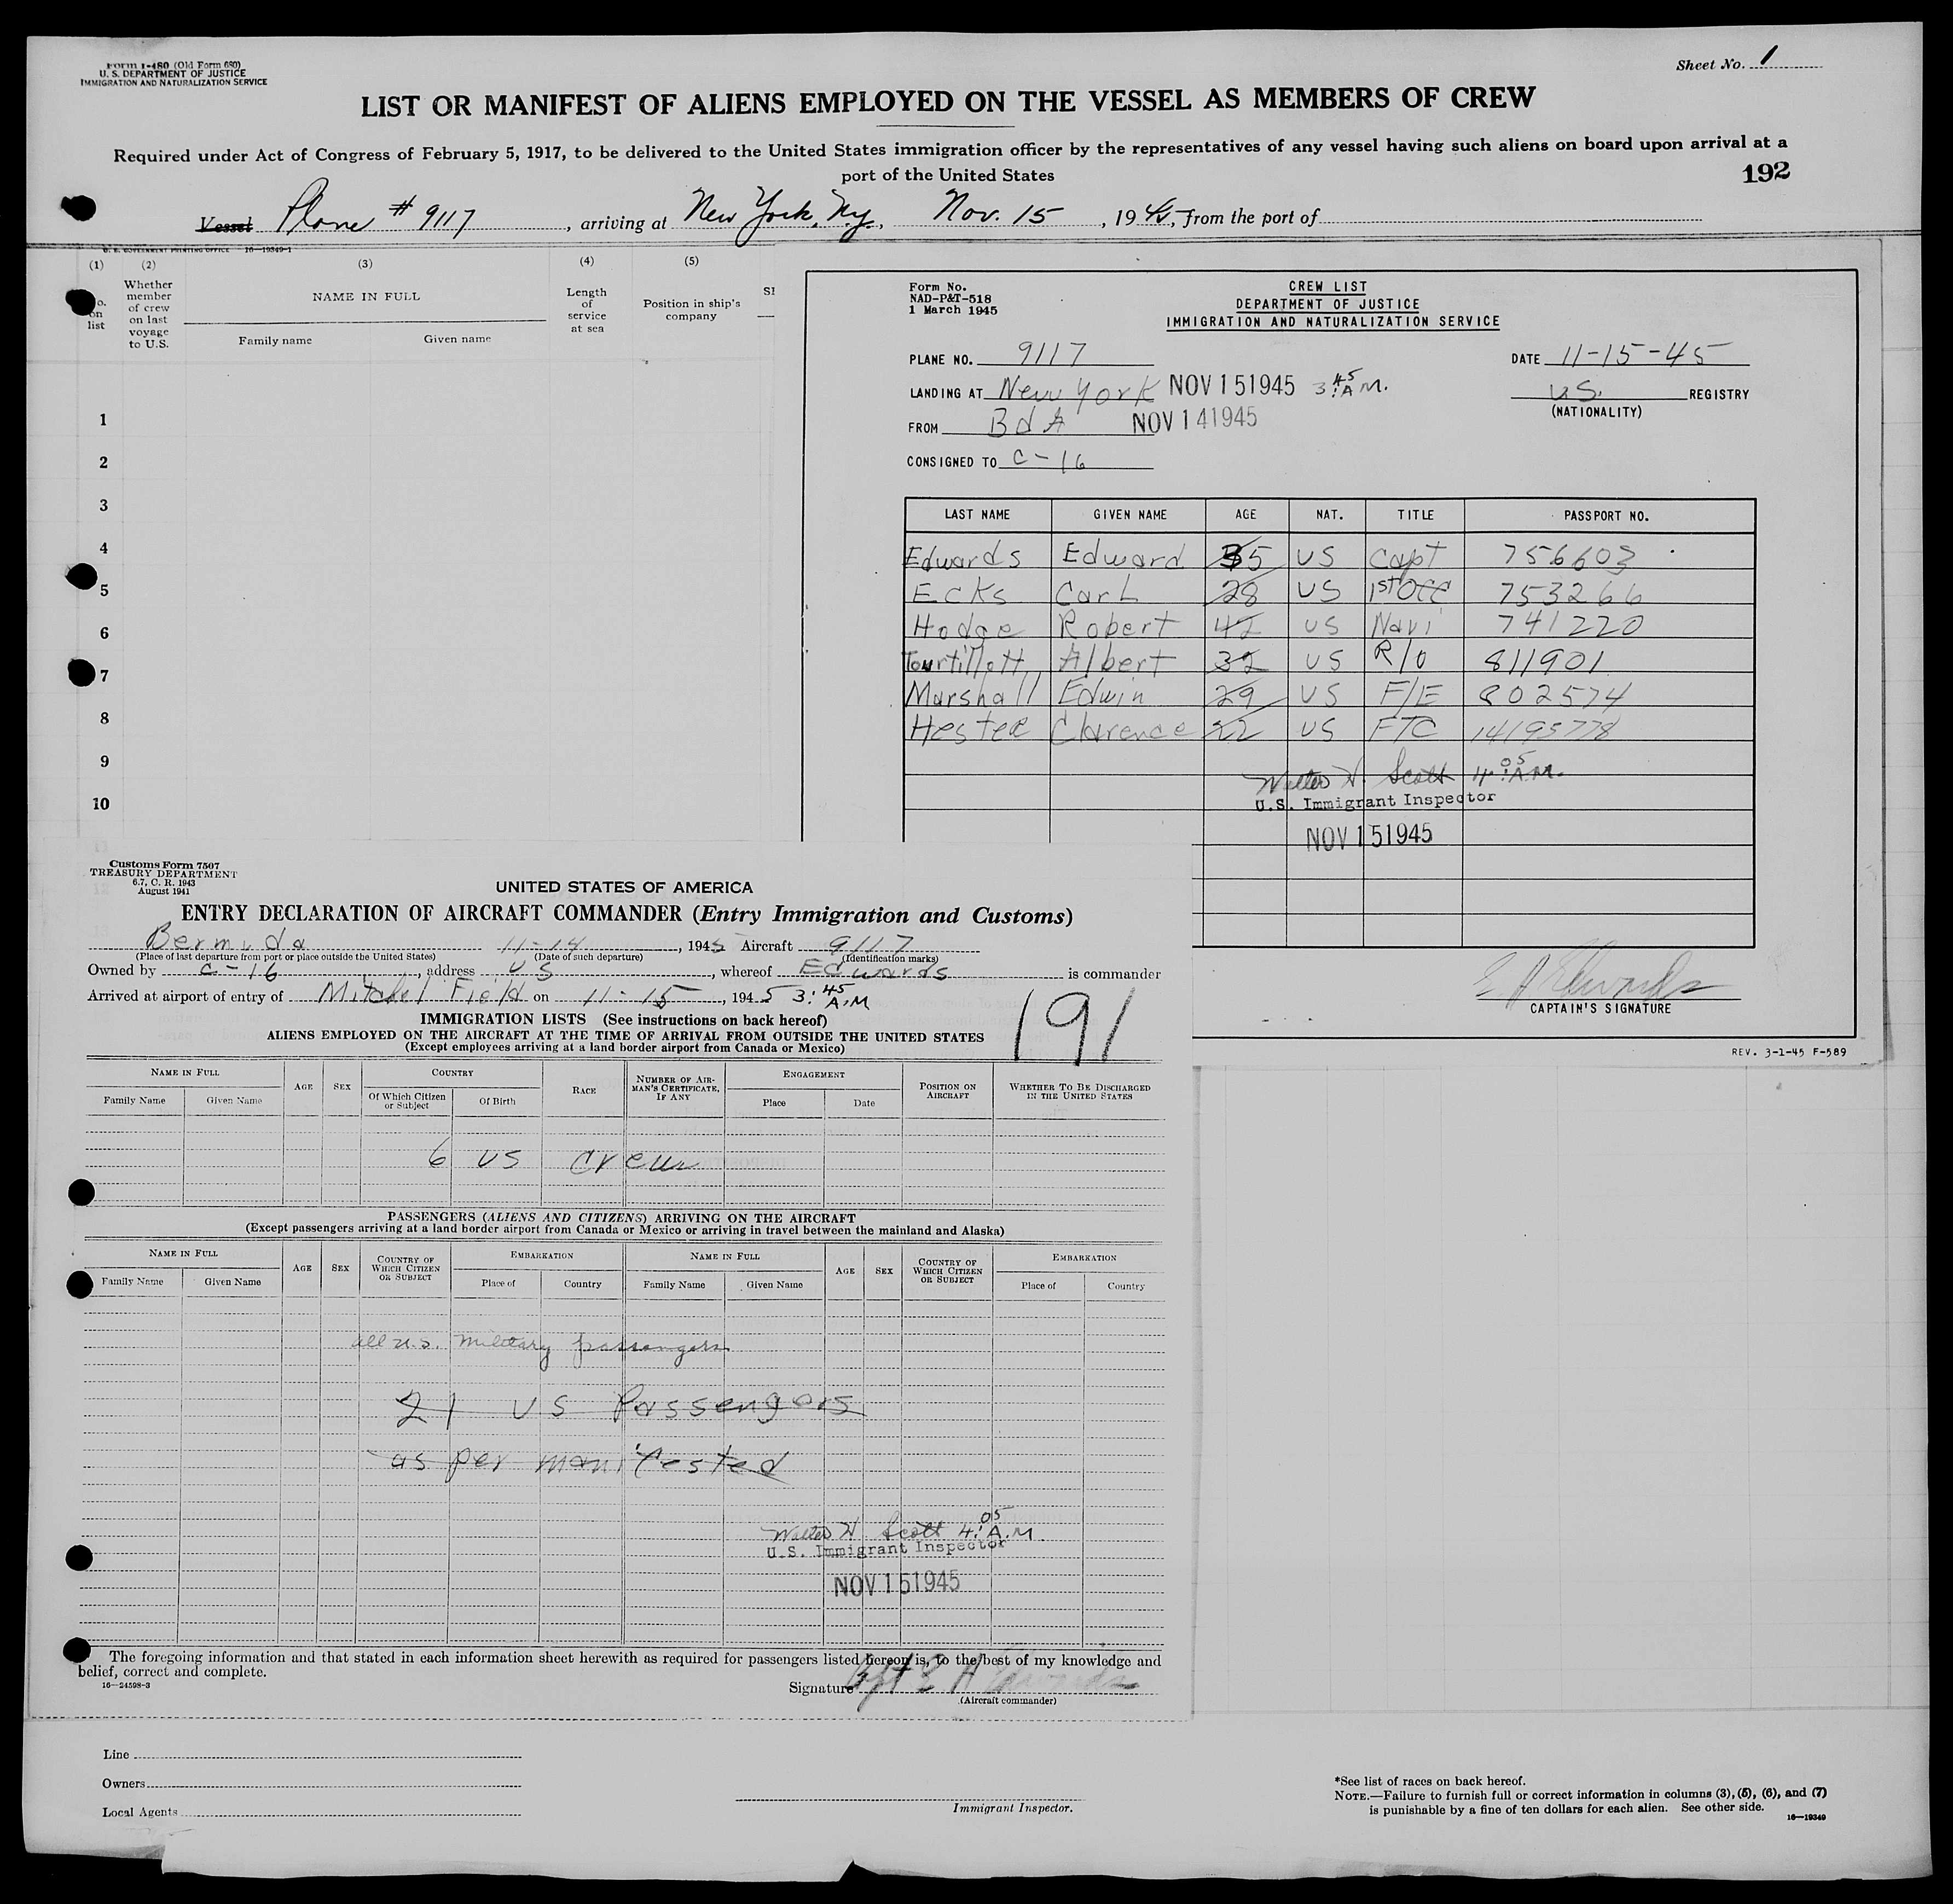 Form I-480 (Old Form 680)
U. S. DEPARTMENT OF JUSTICE
IMMIGRATION AND NATURALIZATION SERVICE
Sheet No. 1
LIST OR MANIFEST OF ALIENS EMPLOYED ON THE VESSEL AS MEMBERS OF CREW
Required under Act of Congress of February 5, 1917, to be delivered to the United States immigration officer by the representatives of any vessel having such aliens on board upon arrival at a
port of the United States
192
Vessel Plane # 9117, arriving at New York, Ny., Nov. 15, 1945, from the port of
U. S. GOVERNMENT PRINTING OFFICE 16-19349-1
(1) (2) (3) (4) (5)
No. on list
Whether member of crew on last voyage to U.S.
NAME IN FULL
Family name Given name
Length of service at sea
Position in ship's company
1
2
3
4
5
6
7
8
9
10
Form No.
NAD-P&T-518
1 March 1945
CREW LIST
DEPARTMENT OF JUSTICE
IMMIGRATION AND NATURALIZATION SERVICE
PLANE NO. 9117 DATE 11-15-45
LANDING AT New York NOV 15 1945 3:45 A.M. U.S. REGISTRY
(NATIONALITY)
FROM BdA NOV 14 1945
CONSIGNED TO C-16
LAST NAME GIVEN NAME AGE NAT. TITLE PASSPORT NO.
Edwards Edward 35 US Capt 756603
Ecks Carl 28 US 1st Off 753266
Hodge Robert 42 US Navi 741220
Tourtillott Albert 32 US R/O 811901
Marshall Edwin 29 US F/E 802574
Hester Clarence 22 US FTC 14195778
Walter H. Scott 4:05 A.M.
U.S. Immigrant Inspector
NOV 15 1945
E. A Edwards
CAPTAIN'S SIGNATURE
REV. 3-1-45 F-589
Customs Form 7507
TREASURY DEPARTMENT
6.7, C. R. 1943
August 1941
UNITED STATES OF AMERICA
ENTRY DECLARATION OF AIRCRAFT COMMANDER (Entry Immigration and Customs)
Bermuda 11-14, 1945 Aircraft 9117
(Place of last departure from port or place outside the United States) (Date of such departure) (Identification marks)
Owned by C-16, address US, whereof Edwards is commander
Arrived at airport of entry of Mitchel Field on 11-15, 1945 3:45 A.M
191
IMMIGRATION LISTS (See instructions on back hereof)
ALIENS EMPLOYED ON THE AIRCRAFT AT THE TIME OF ARRIVAL FROM OUTSIDE THE UNITED STATES
(Except employees arriving at a land border airport from Canada or Mexico)
NAME IN FULL AGE SEX COUNTRY RACE NUMBER OF AIRMAN'S CERTIFICATE, IF ANY ENGAGEMENT POSITION ON AIRCRAFT WHETHER TO BE DISCHARGED IN THE UNITED STATES
Family Name Given Name Of Which Citizen or Subject Of Birth Place Date
6 US Crew
PASSENGERS (ALIENS AND CITIZENS) ARRIVING ON THE AIRCRAFT
(Except passengers arriving at a land border airport from Canada or Mexico or arriving in travel between the mainland and Alaska)
NAME IN FULL AGE SEX COUNTRY OF WHICH CITIZEN OR SUBJECT EMBARKATION NAME IN FULL AGE SEX COUNTRY OF WHICH CITIZEN OR SUBJECT EMBARKATION
Family Name Given Name Place of Country Family Name Given Name Place of Country
all U.S. military passengers
21 US Passengers
as per manifested
Walter H Scott 4:05 A.M.
U.S. Immigrant Inspector
NOV 15 1945
The foregoing information and that stated in each information sheet herewith as required for passengers listed hereon is, to the best of my knowledge and
belief, correct and complete.
16-24598-3
Signature Capt E A Edwards
(Aircraft commander)
Line
Owners
Local Agents
Immigrant Inspector.
*See list of races on back hereof.
NOTE.—Failure to furnish full or correct information in columns (3), (5), (6), and (7)
is punishable by a fine of ten dollars for each alien. See other side.
16-19349